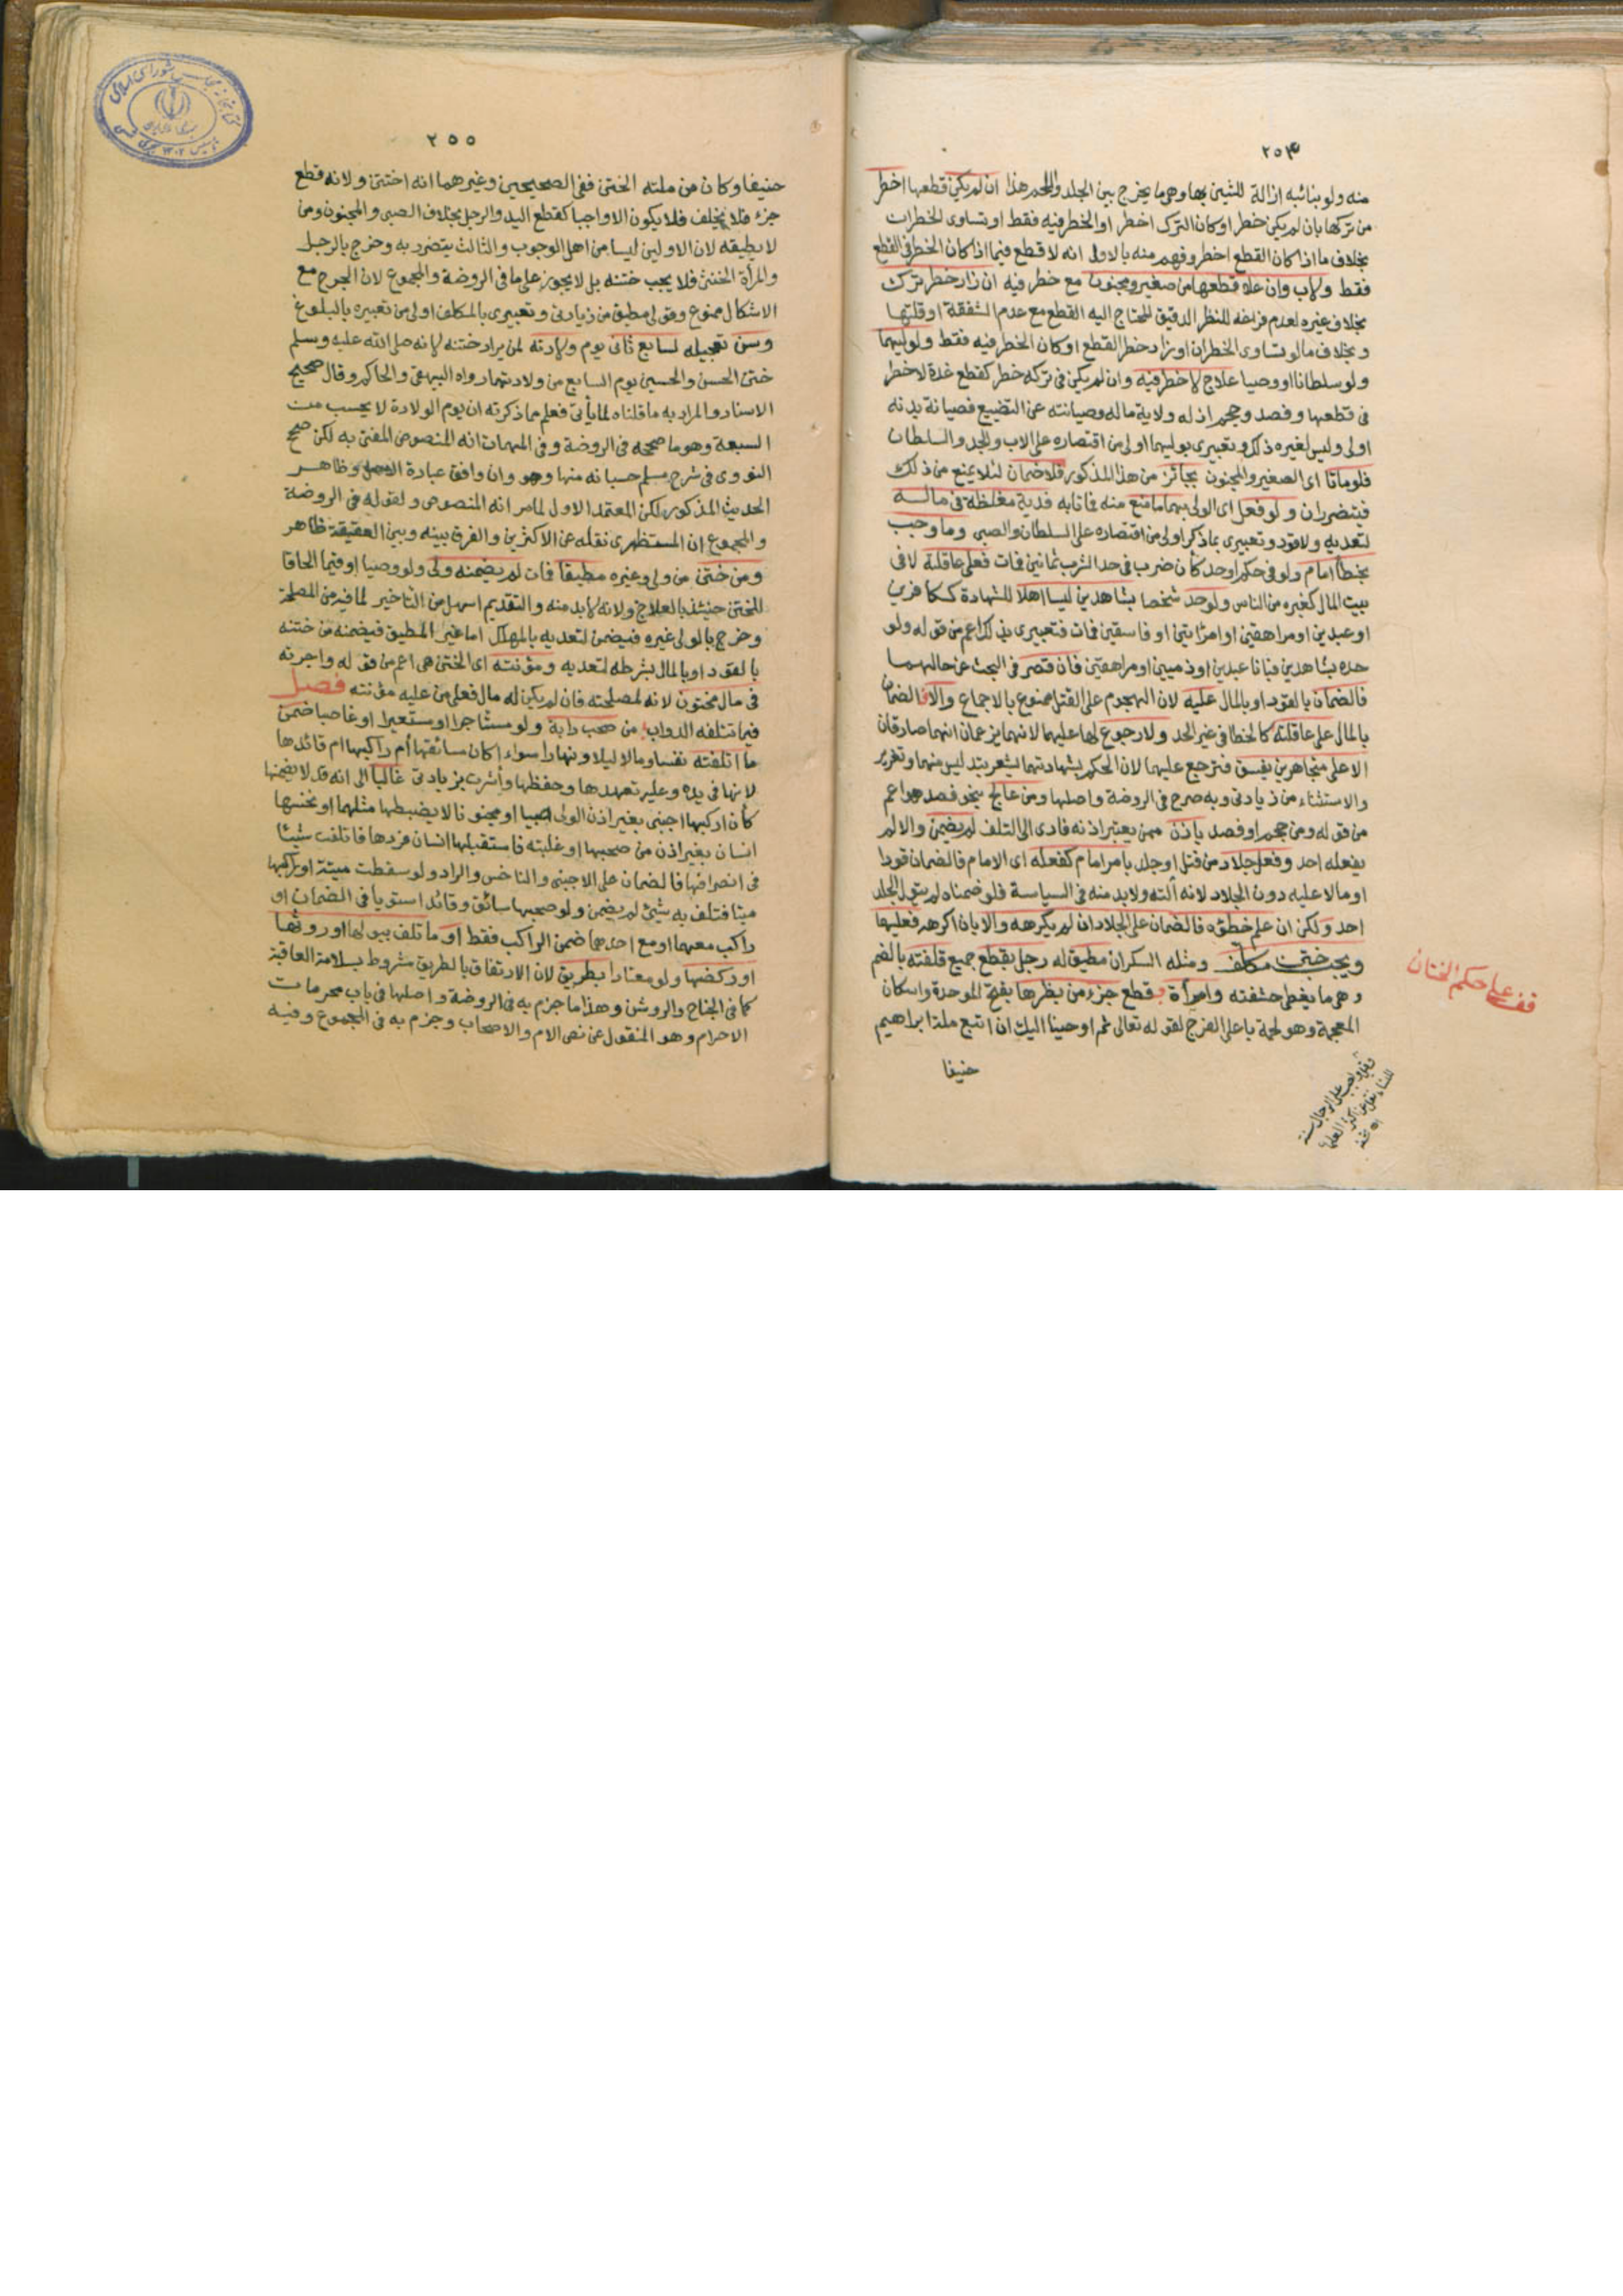 ٢٥٤
منه ولو بنائبه ازالة للشين بها وهي ما يخرج بين الجلد واللحم هذا ان لم يكن قطعها اخطر
من تركها بان لم يكن خطر او كان الترك اخطر او الخطر فيه فقط او تساوى الخطرات
بخلاف ما اذا كان القطع اخطر وفهم منه بالاولى انه لا قطع فيما اذا كان الخطر في القطع
فقط ولاب وان علا قطعها من صغير ومجنون مع خطر فيه ان زاد خطر ترك
بخلاف غيره لعدم فراغه للنظر الدقيق المحتاج اليه القطع مع عدم الشفقة او قلتها
وبخلاف ما لو تساوى الخطران او زاد خطر القطع او كان الخطر فيه فقط ولوليهما
ولو سلطانا او وصيا علاج لا خطر فيه وان لم يكن في تركه خطر كقطع غدة لا خطر
في قطعها وفصد وحجم اذ له ولاية ماله وصيانته عن التضييع فصيانة بدنه
اولى وليس لغيره ذلك وتعبيري بوليهما اولى من اقتصاره على الاب والجد والسلطان
فلو ماتا اى الصغير والمجنون بجائز من هذا المذكور فلا ضمان لئلا يمنع من ذلك
فيتضرران ولو فعل اى الولى بهما ما منع منه فماتا به فدية مغلظة في ماله
لتعديه ولا قود وتعبيري بما ذكر اولى من اقتصاره على السلطان والصبى وما وجب
بخطأ امام ولو في حكم او حد كأن ضرب في حد الشرب ثمانين فمات فعلى عاقلته لا في
بيت المال كغيره من الناس ولو حد شخصا بشاهدين ليسا اهلا للشهادة ككافرين
او عبدين او مراهقين او امرأتين او فاسقين فمات فتعبيري بذلك اعم من قوله ولو
حده بشاهدين فبانا عبدين او ذميين او مراهقين فان قصر في البحث عن حالهما
فالضمان بالقود او بالمال عليه لان الهجوم على القتل ممنوع بالاجماع والا فالضمان
بالمال على عاقلته كالخطا في غير الحد ولا رجوع لها عليهما لانهما يزعمان انهما صادقان
الا على متجاهرين بفسق فترجع عليهما لان الحكم بشهادتهما يشعر بتدليس منهما وتغرير
والاستثناء من زيادتى وبه صرح في الروضة واصلها ومن عالج بنحو فصد هو اعم
من قوله ومن حجم او فصد باذن ممن يعتبر اذنه فادى الى التلف لم يضمن والا لم
يفعله احد وفعل جلاد من قتل او جلد بامر امام كفعله اى الامام فالضمان قودا
او مالا عليه دون الجلاد لانه آلته ولا بد منه في السياسة فلو ضمناه لم يتول الجلد
احد ولكن ان علم خطؤه فالضمان على الجلاد ان لم يكرهه والا بان اكرهه فعليهما
ويجب ختن مكلف ومثله السكران مطيق له رجل بقطع جميع قلفته بالضم
وهى ما يغطى حشفته وامرأة بقطع جزء من بظرها بفتح الموحدة واسكان
المعجمة وهو لحمة باعلى الفرج لقوله تعالى ثم اوحينا اليك ان اتبع ملة ابراهيم
حنيفا
قف على حكم الختان
وقيل واجب على الرجال سنة
للنساء
٢٥٥
حنيفا وكان من ملته الختن ففي الصحيحين وغيرهما انه اختتن ولانه قطع
جزء فلا يخلف فلا يكون الا واجبا كقطع اليد والرجل بخلاف الصبى والمجنون ومن
لا يطيقه لان الاولين ليسا من اهل الوجوب والثالث يتضرر به وخرج بالرجل
والمرأة الخنثى فلا يجب ختنه بل لا يجوز على ما في الروضة والمجموع لان الجرح مع
الاشكال ممنوع وقولى مطيق من زيادتى وتعبيرى بالمكلف اولى من تعبيره بالبلوغ
وسن تعجيله لسابع ثانى يوم ولادته لمن يراد ختنه لانه صلى الله عليه وسلم
ختن الحسن والحسين يوم السابع من ولادتهما رواه البيهقى والحاكم وقال صحيح
الاسناد والمراد به ما قلناه لما يأتى فعلم مما ذكرته ان يوم الولادة لا يحسب من
السبعة وهو ما صححه في الروضة وفي المهمات انه المنصوص المفتى به لكن صحح
النووى في شرح مسلم حسبانه منها وهو وان وافق عبارة الاصل وظاهر
الحديث المذكور لكن المعتمد الاول لما مر انه المنصوص ولقوله في الروضة
والمجموع ان المستظهرى نقله عن الاكثرين والفرق بينه وبين العقيقة ظاهر
ومن ختن من ولى وغيره مطيقا فمات لم يضمنه ولى ولو وصيا او قيما الحاقا
للختن حينئذ بالعلاج ولانه لا بد منه والتقديم اسهل من التاخير لما فيه من المصلحة
وخرج بالولى غيره فيضمن لتعديه بالمهلك اما غير المطيق فيضمنه من ختنه
بالقود او بالمال بشرطه لتعديه ومؤنته اى الختن هى اعم من قوله واجرته
في مال مختون لانه لمصلحته فان لم يكن له مال فعلى من عليه مؤنته فصل
فيما تتلفه الدواب من صحب دابة ولو مستاجرا او مستعيرا او غاصبا ضمن
ما اتلفته نفسا ومالا ليلا ونهارا سواء اكان سائقها أم راكبها ام قائدها
لانها في يده وعليه تعهدها وحفظها وأشرت بزيادتى غالبا الى انه قد لا يضمنها
كأن اركبها اجنبى بغير اذن الولى صبيا او مجنونا لا يضبطها مثلهما او نخسها
انسان بغير اذن من صحبها او غلبته فاستقبلها انسان فردها فاتلفت شيئا
في انصرافها فالضمان على الاجنبى والناخس والراد ولو سقطت ميتة او راكبها
ميتا فتلف به شيئ لم يضمن ولو صحبها سائق وقائد استويا في الضمان او
راكب معهما او مع احدهما ضمن الراكب فقط او ما تلف ببولها او روثها
او ركضها ولو معتادا بطريق لان الارتفاق بالطريق مشروط بسلامة العاقبة
كما في الجناح والروشن وهذا ما جزم به في الروضة واصلها في باب محرمات
الاحرام وهو المنقول عن نص الام والاصحاب وجزم به في المجموع وفيه